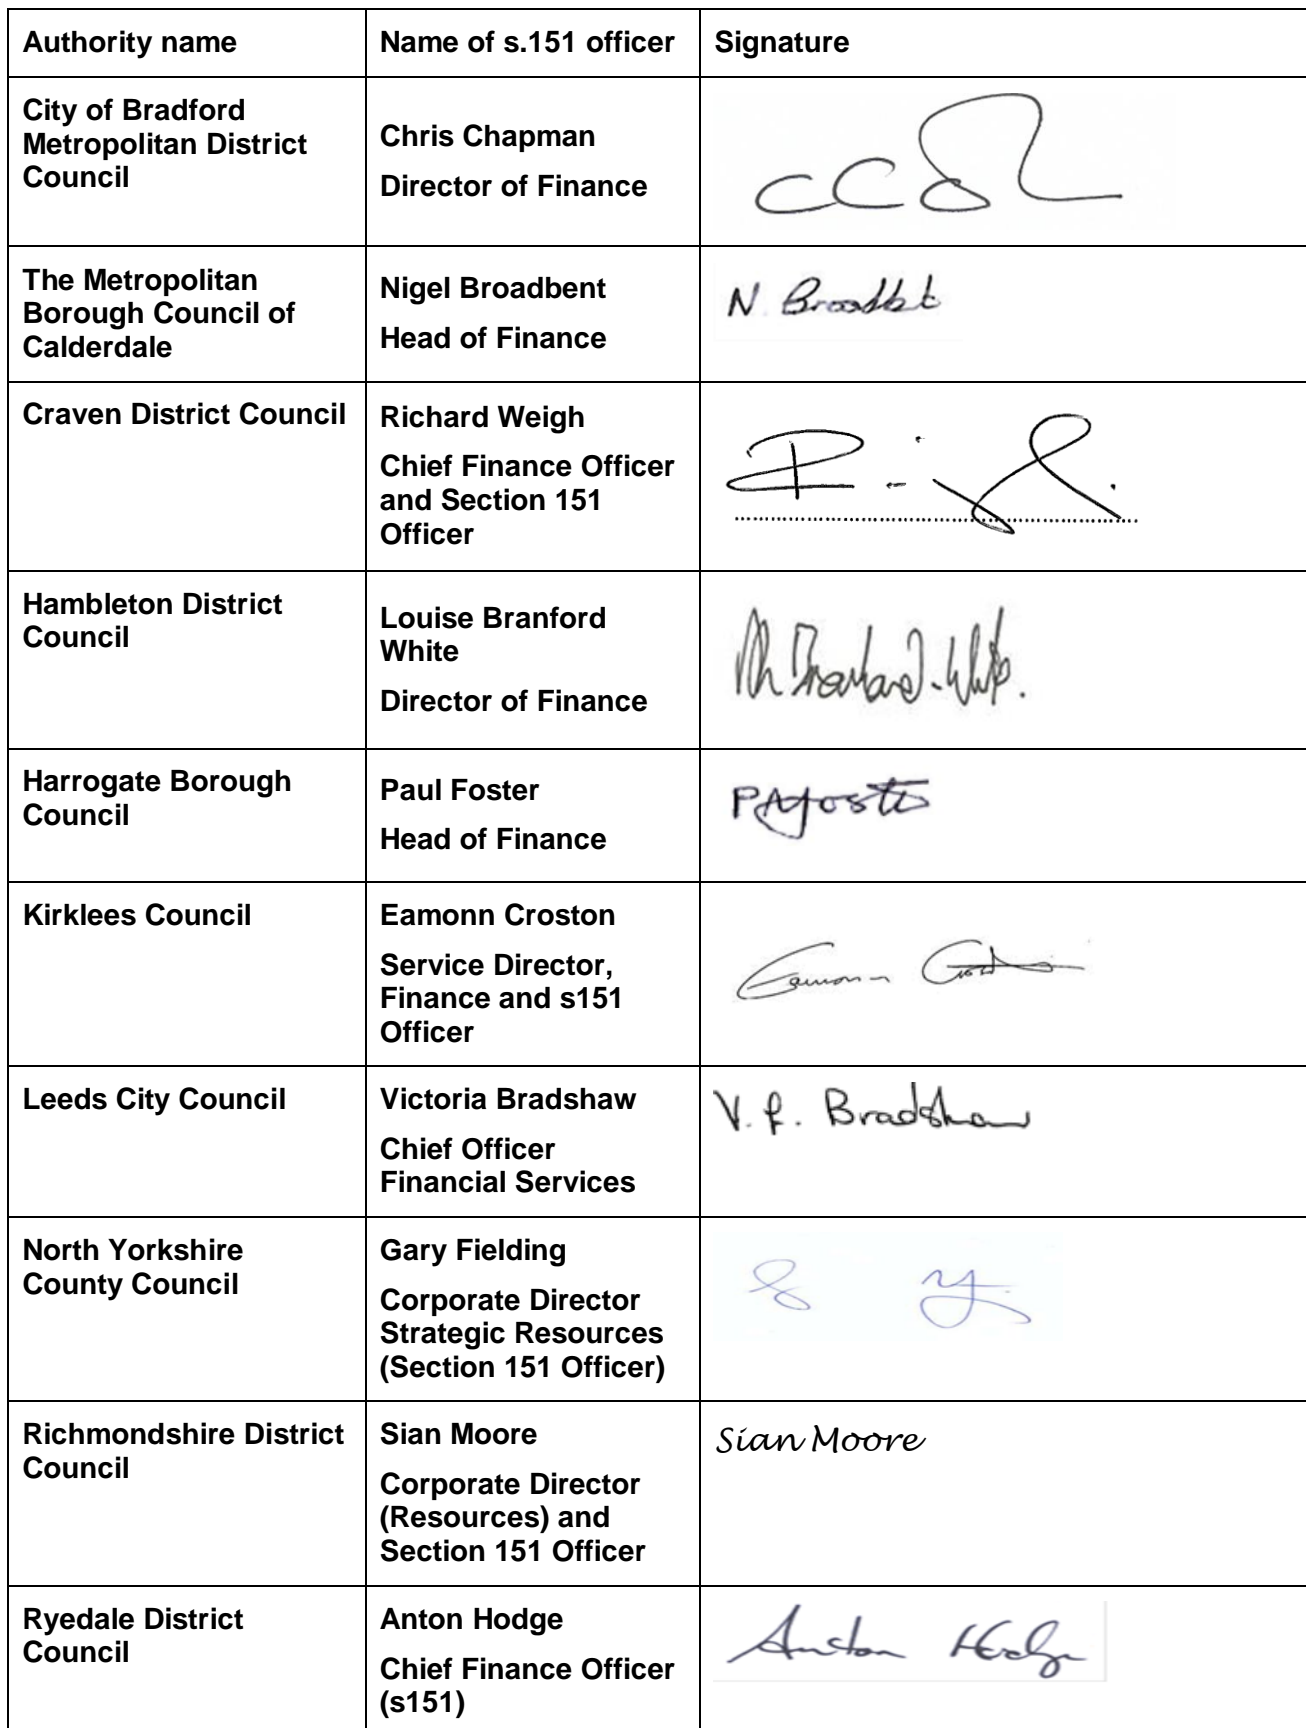 Authority name
Name of s.151 officer
Signature
City of Bradford
Metropolitan District
Council
Chris Chapman
Director of Finance
The Metropolitan
Borough Council of
Calderdale
Nigel Broadbent
Head of Finance
N. Broadbt
Craven District Council
Richard Weigh
Chief Finance Officer
and Section 151
Officer
Hambleton District
Council
Louise Branford
White
Director of Finance
Harrogate Borough
Council
Paul Foster
Head of Finance
PAFoster
Kirklees Council
Eamonn Croston
Service Director,
Finance and s151
Officer
Eamonn
Leeds City Council
Victoria Bradshaw
Chief Officer
Financial Services
V. P. Bradshaw
North Yorkshire
County Council
Gary Fielding
Corporate Director
Strategic Resources
(Section 151 Officer)
Richmondshire District
Council
Sian Moore
Corporate Director
(Resources) and
Section 151 Officer
Sian Moore
Ryedale District
Council
Anton Hodge
Chief Finance Officer
(s151)
Anton Hodge